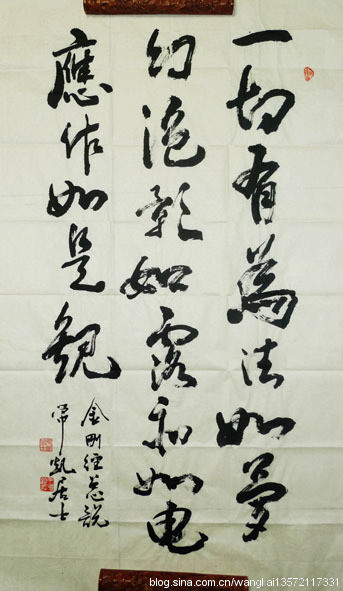 一切有為法如夢
幻泡影如露和如电
應作如是觀
金剛經总說
常凱居士
blog.sina.com.cn/wangkai13572117331